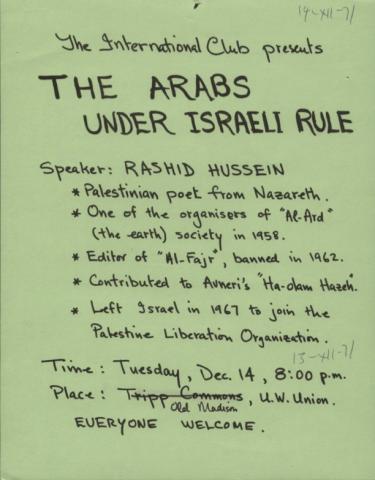 14-XII-71
The International Club presents
THE ARABS
UNDER ISRAELI RULE
Speaker: RASHID HUSSEIN
* Palestinian poet from Nazareth.
* One of the organisers of "Al-Ard"
(the earth) society in 1958.
* Editor of "Al-Fajr", banned in 1962.
* Contributed to Avneri's "Ha-olam Hazeh".
* Left Israel in 1967 to join the
Palestine Liberation Organization.
13-XII-71
Time: Tuesday, Dec. 14, 8:00 p.m.
Place: Tripp Commons, U.W. Union.
Old Madison
EVERYONE WELCOME.